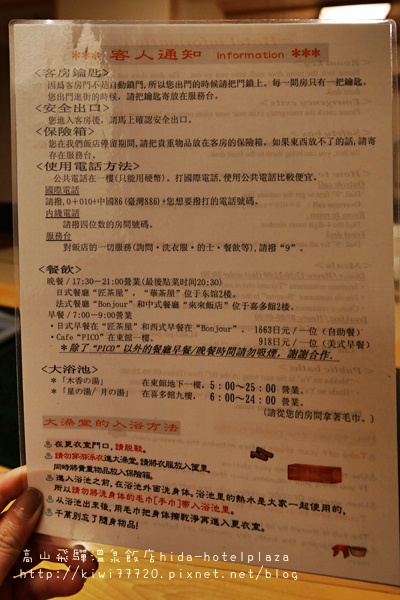 *** 客人通知 information ***
<客房鑰匙>
因為客房門不是自動鎖門,所以您出門的時候請把門鎖上。每一間房只有一把鑰匙。
您出門逛街的時候，請把鑰匙寄放在服務台。
<安全出口>
您進入客房後，請馬上確認安全出口。
<保險箱>
您在我們飯店停留期間,請把貴重物品放在客房的保險箱。如果東西放不了的話,請寄
存在服務台。
<使用電話方法>
公共電話在一樓(只能用硬幣)。打國際電話,使用公共電話比較便宜。
國際電話
請撥,0+010+中國86(臺灣886)+您想要撥打的電話號碼。
内綫電話
請撥四位數的房間號碼。
服務台
對飯店的一切服務(詢問・洗衣服・的士・餐飲等),請撥“9”。
<餐飲>
晚餐/17:30-21:00營業(最後點菜時间20:30)
日式餐廳“匠茶屋”，“華茶屋”位于东馆2楼。
法式餐廳“Bonjour”和中式餐廳“來來飯店”位于喜多館2樓。
早餐/7:00-9:00營業
・日式早餐在“匠茶屋”和西式早餐在“Bonjour”， 1663日元/一位(自助餐)
・Cafe“PICO”在東館一樓。 918日元/一位(美式早餐)
*除了“PICO”以外的餐廳早餐/晚餐時間請勿吸煙，謝謝合作。
<大浴池>
*「木香の湯」 在東館地下一樓。5：00～25：00 營業。
*「星の湯/月の湯」 在喜多館九樓。6：00～24：00 營業。
(請從您的房間拿著毛巾。)
大澡堂的入浴方法
在更衣室門口,請脫鞋。
請勿穿游泳衣進大澡堂。請將衣服放入筐里。
同時將貴重物品放入保險箱。
進入浴池之前，在浴池外面洗身体。浴池里的熱水是大家一起使用的。
所以請勿將洗身体的毛巾[手巾]帶入浴池里。
从浴池出來後，用毛巾把身体擦乾淨再進入更衣室。
千萬别忘了随身物品!
高山飛驒溫泉飯店hida-hotelplaza
http://kiwi77720.pixnet.net/blog